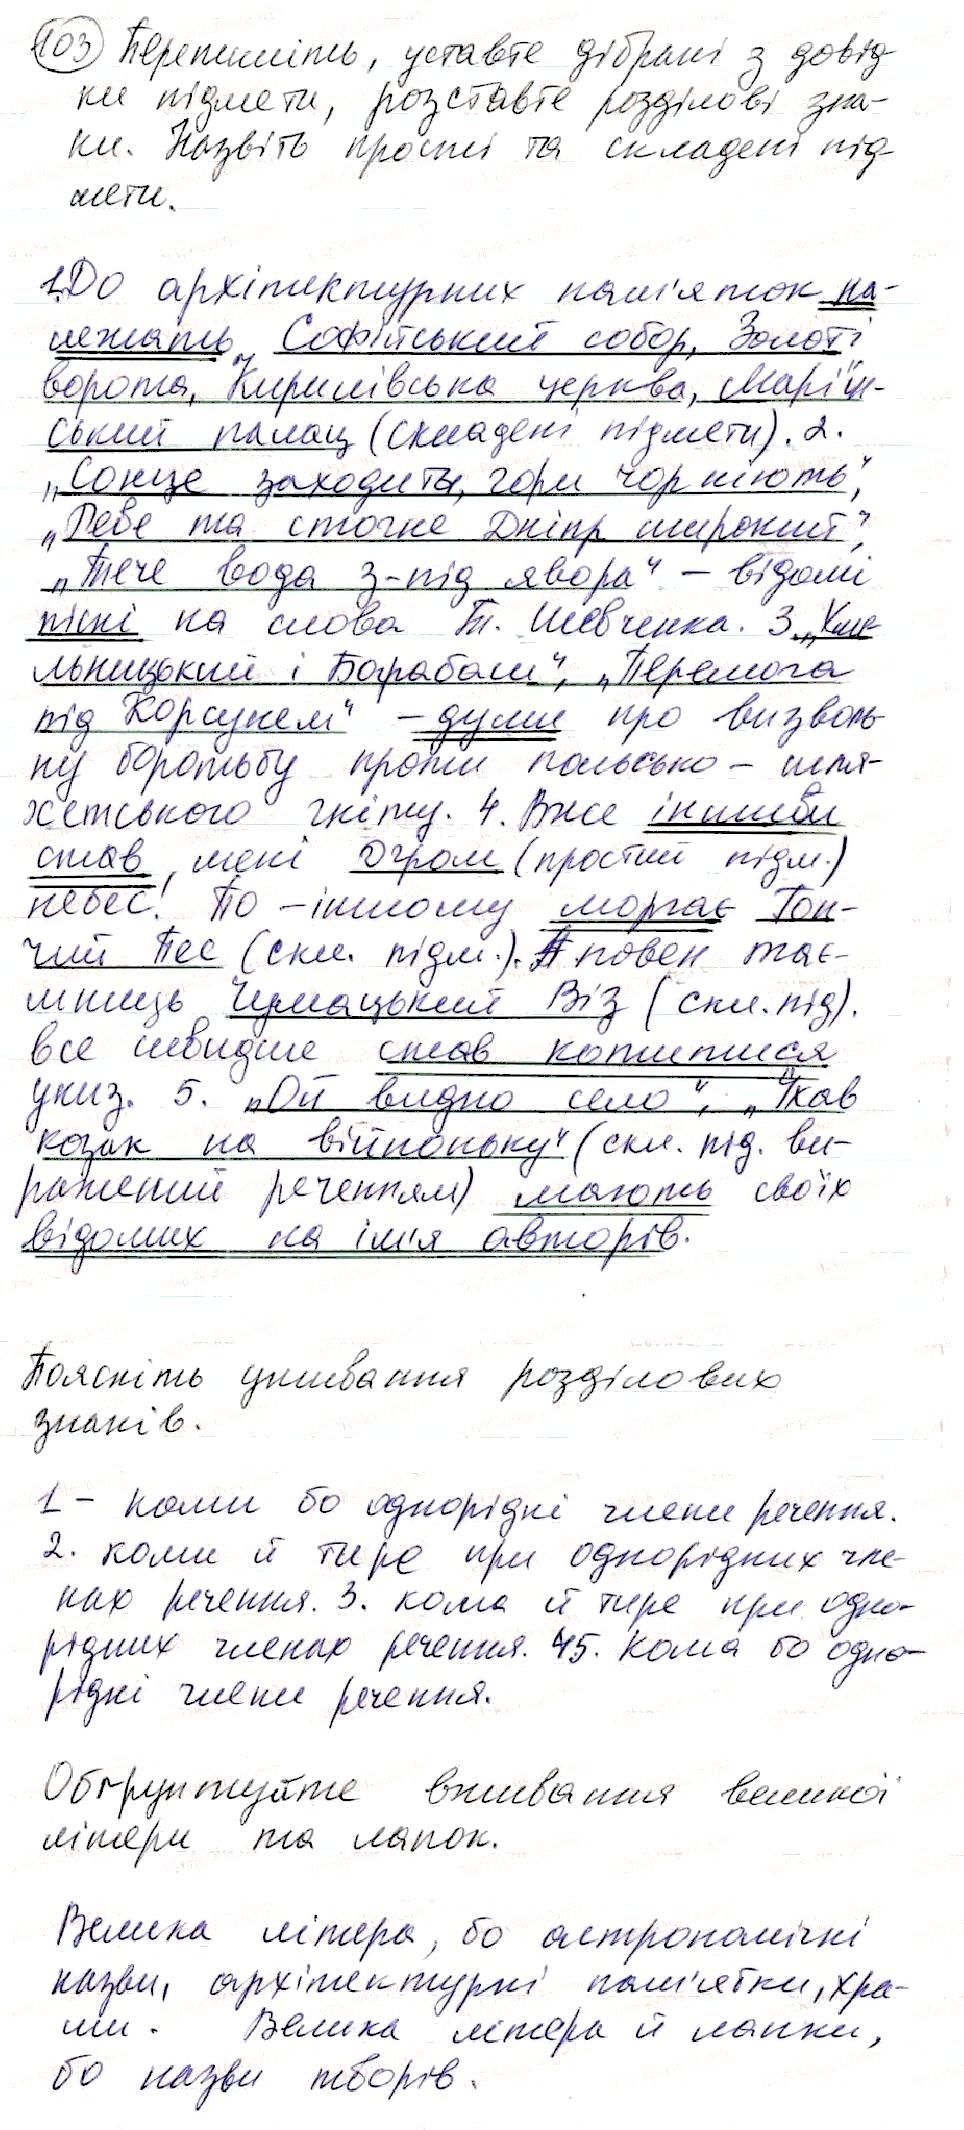 103 Перепишіть, уставте дібрані з довід-
ки підмети, розставте розділові зна-
ки. Назвіть прості та складені під-
мети.
1. До архітектурних пам'яток на-
лежать Софійський собор, Золоті
ворота, Кирилівська церква, Маріїн-
ський палац (складені підмети). 2.
„Сонце заходить, гори чорніють",
„Реве та стогне Дніпр широкий",
„Тече вода з-під явора" – відомі
пісні на слова Т. Шевченка. 3. „Хме-
льницький і Барабаш", „Перемога
під Корсунем" – думи про визволь-
ну боротьбу проти польсько – шля-
хетського гніту. 4. Вже іншим
став мені огром (простий підм.)
небес! По – іншому моргає Гон-
чий Пес (скл. підм.). А повен тає-
мниць Чумацький Віз (скл. під).
все швидше став котитися
униз. 5. „Ой видно село", „Їхав
козак на війноньку" (скл. під. ви-
ражений реченням) мають своїх
відомих на ім'я авторів.
Поясніть уживання розділових
знаків.
1 – коми бо однорідні члени речення.
2. коми й тире при однорідних чле-
нах речення. 3. кома й тире при одно-
рідних членах речення. 5. кома бо одно-
рідні члени речення.
Обґрунтуйте вживання великої
літери та лапок.
Велика літера, бо астрономічні
назви, архітектурні пам'ятки, хра-
ми. Велика літера й лапки,
бо назви творів.